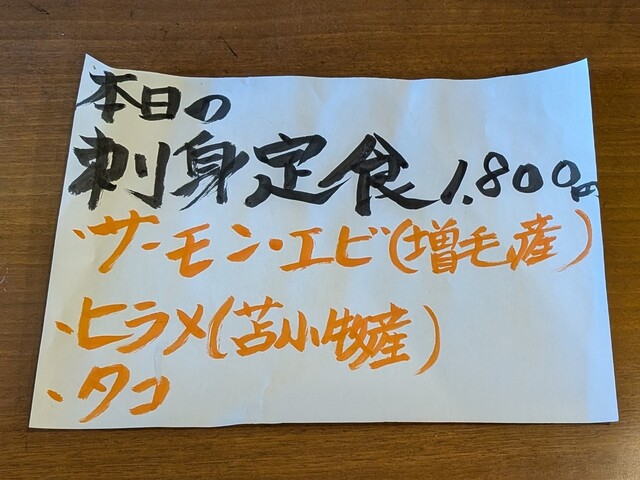 本日の
刺身定食 1.800円
・サーモン・エビ(増毛産)
・ヒラメ(苫小牧産)
・タコ